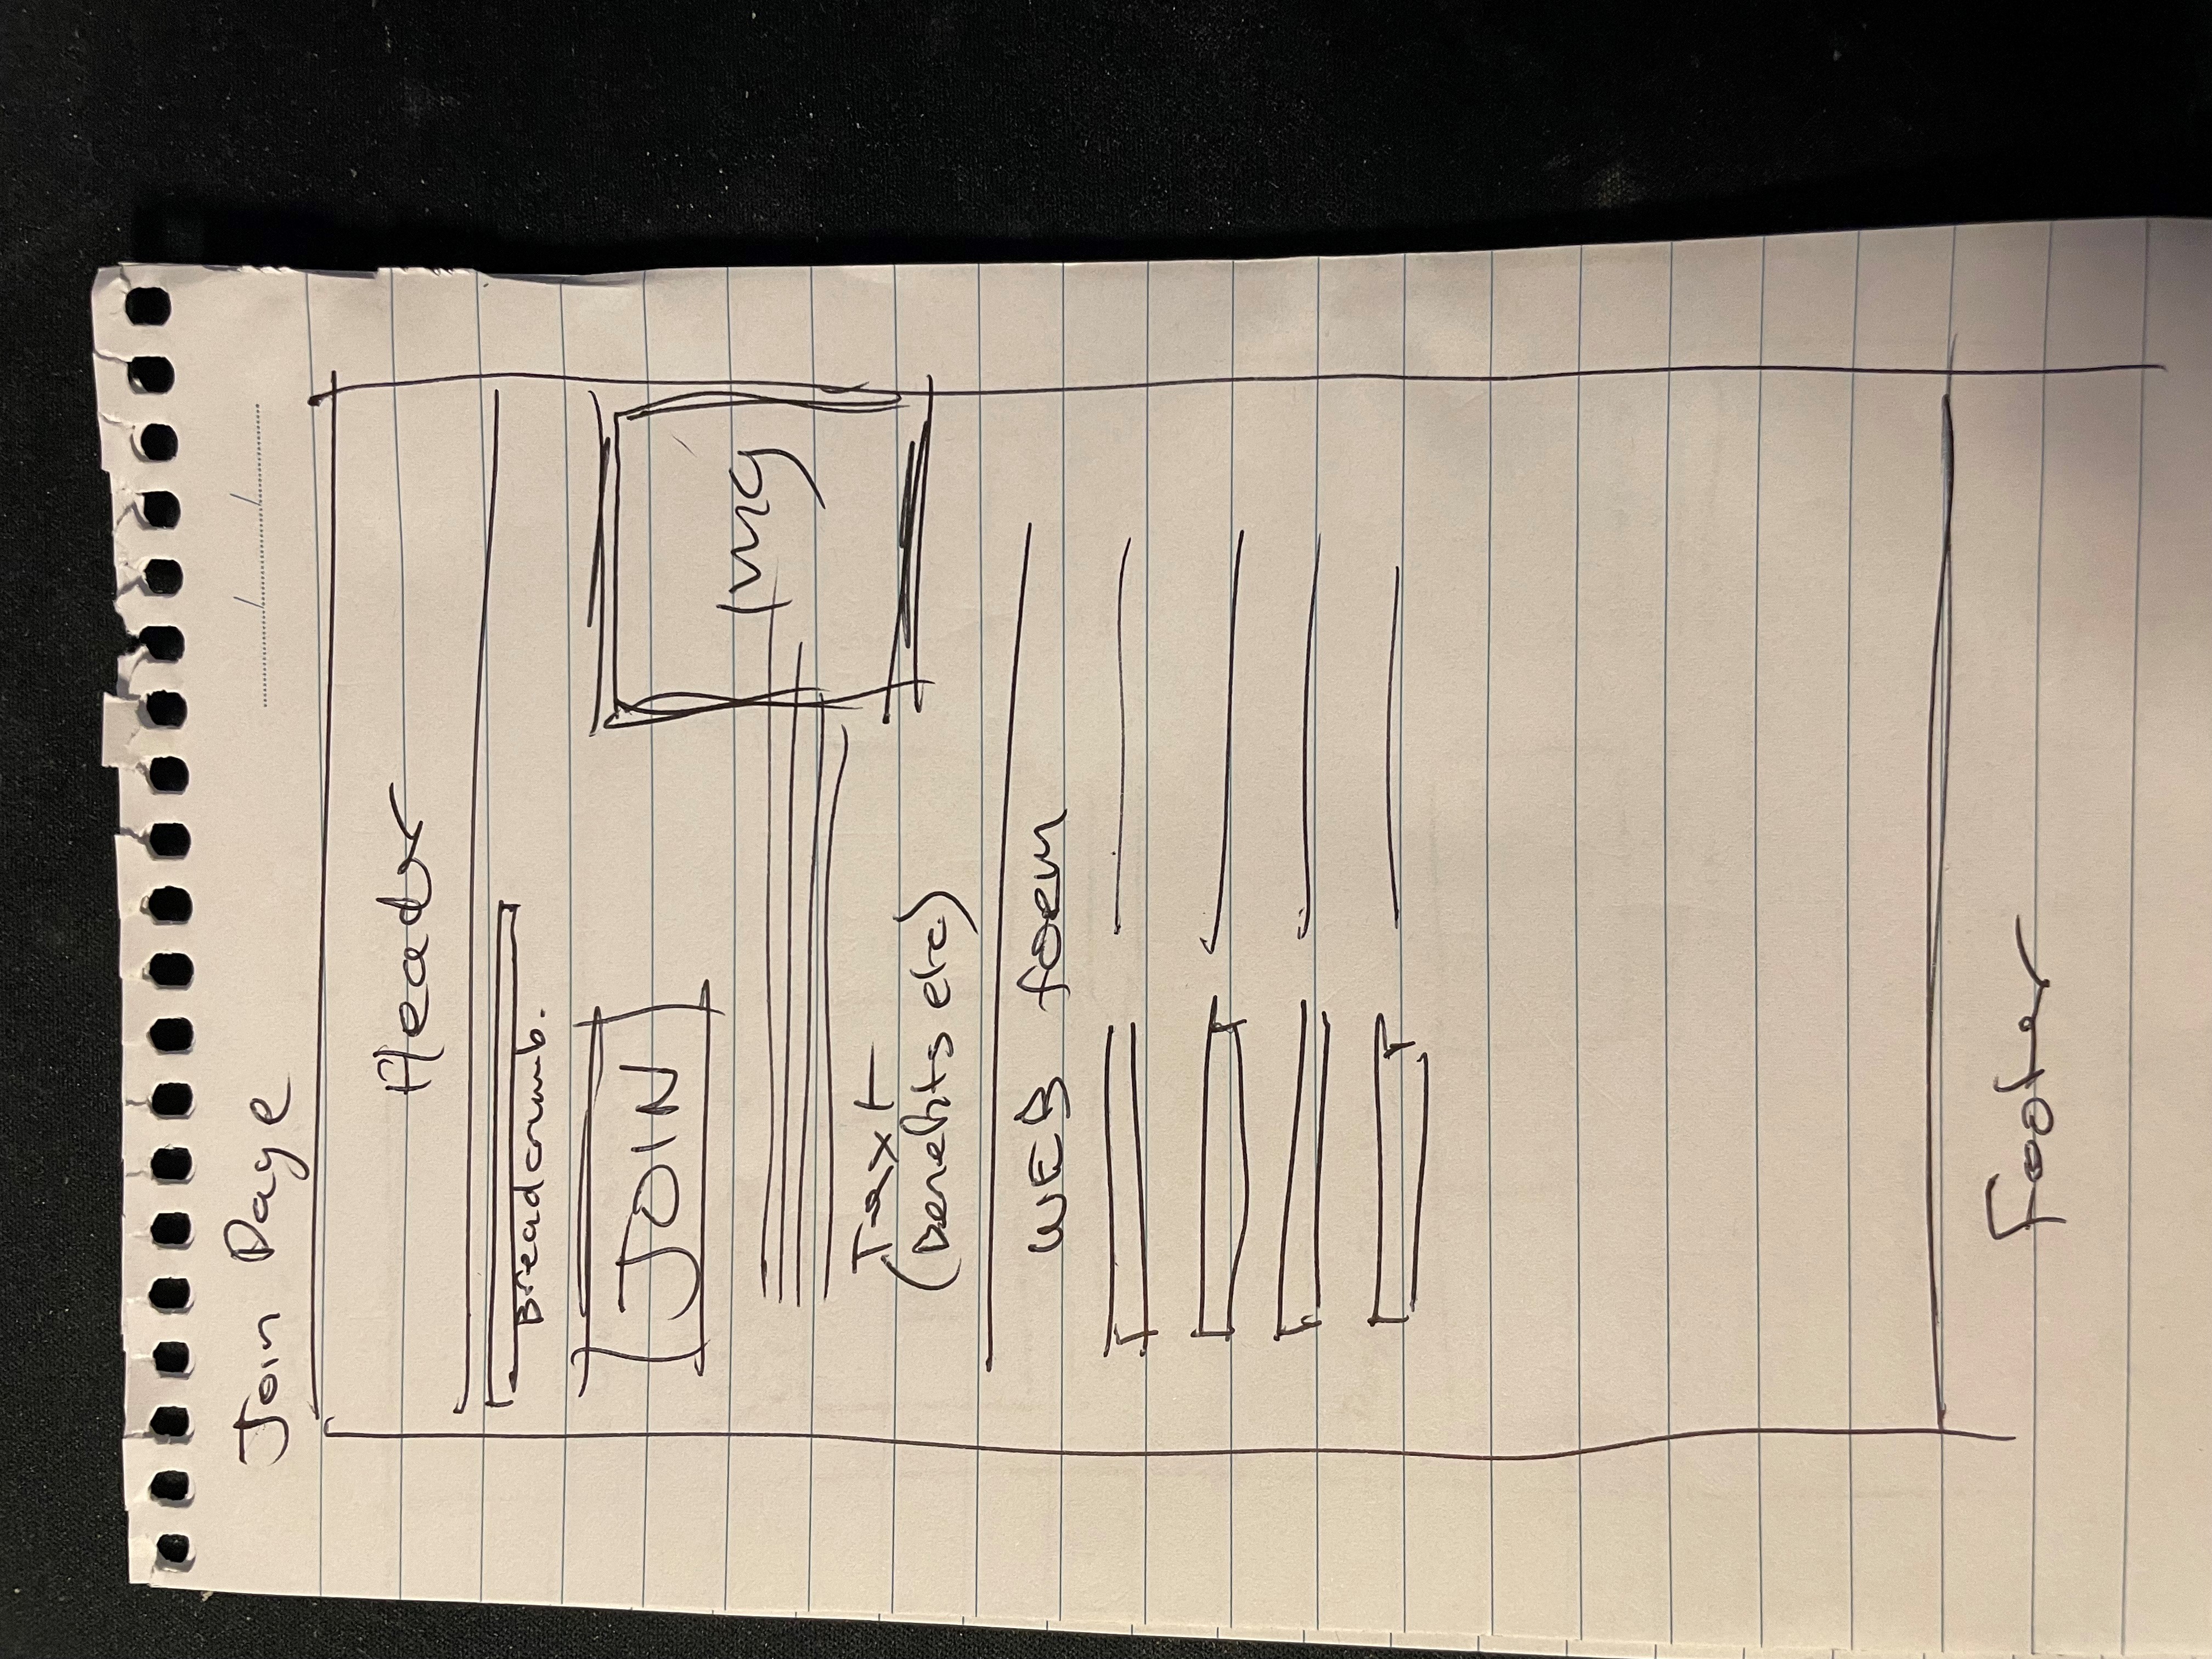 Join Page
Header
Breadcrumb.
JOIN
Img
Text
(benefits etc)
WEB form
Footer